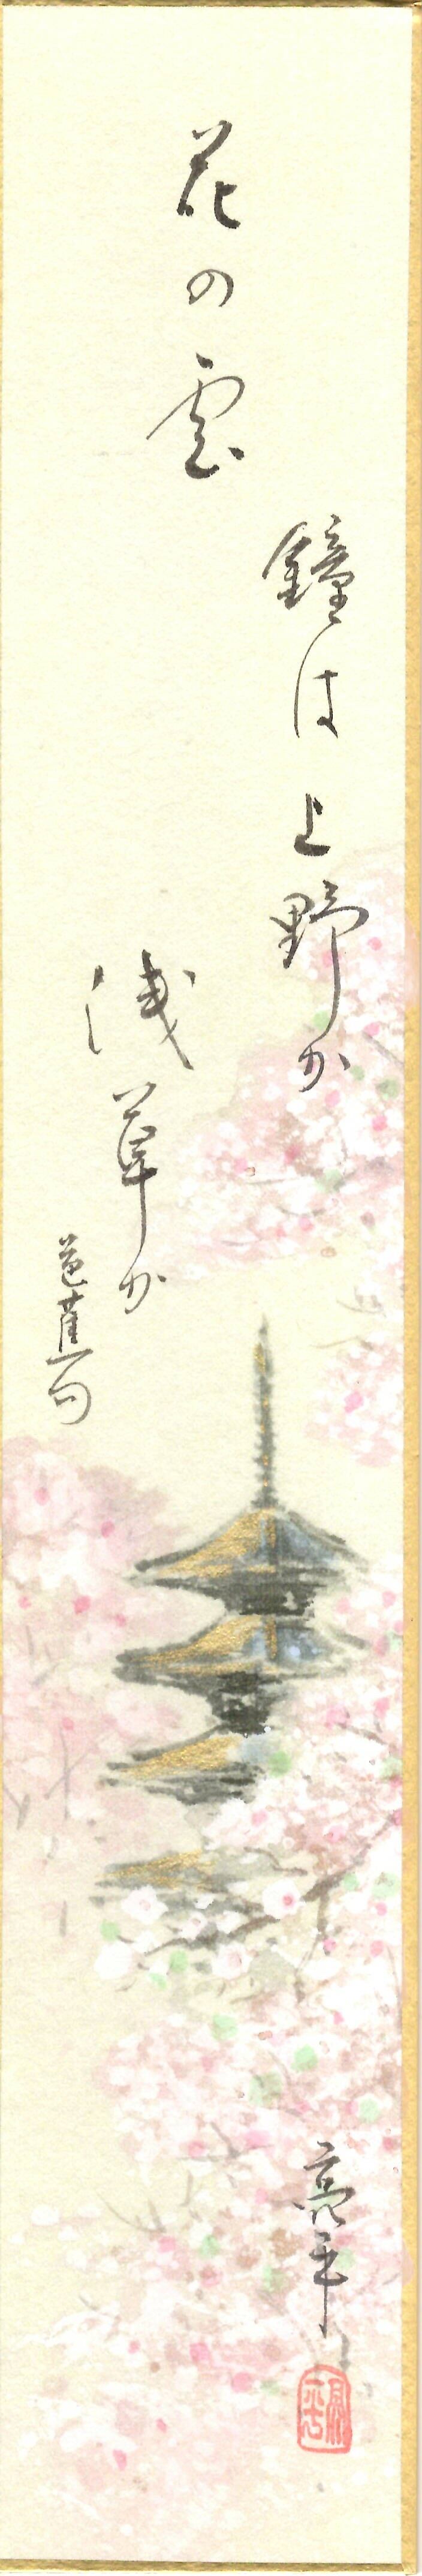 花の雲
鐘は上野か
浅草か
芭蕉句
亮平